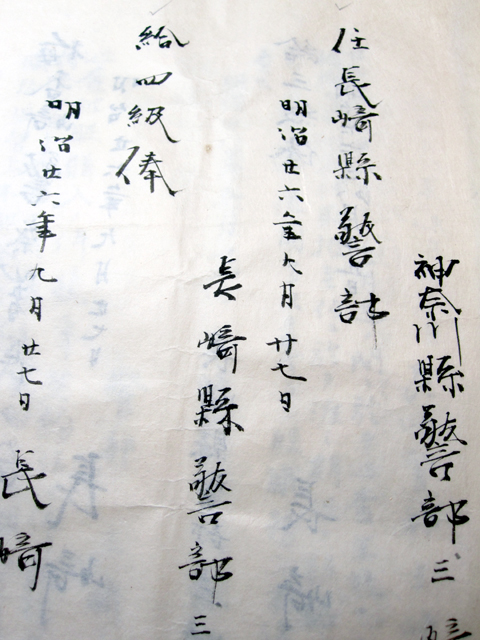 神奈川縣警部三
任長崎縣警部
明治廿六年九月廿七日
長崎縣警部三
給四級俸
明治廿六年九月廿七日
長崎